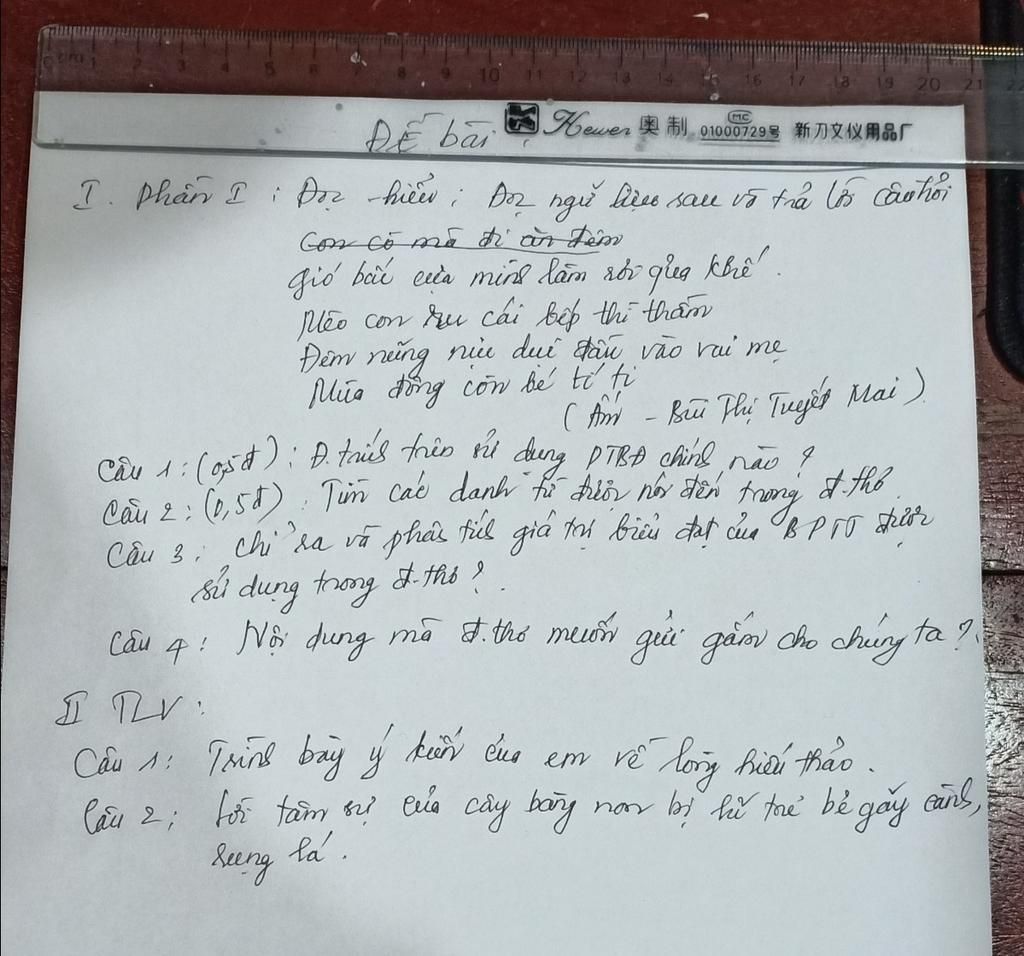 cm 1 2 3 4 5 6 7 8 9 10 11 12 13 14 15 16 17 18 19 20 21
ĐỀ bài: Hewen 奥 制 MC 01000729号 新刀文仪用品厂
I. Phần I: Đọc hiểu; Đọc ngữ liệu sau và trả lời câu hỏi
Con cò mà đi ăn đêm
Gió bấc cựa mình làm rơi quả khế.
Mèo con ru cái bếp thì thầm
Đêm nũng nịu dụi đầu vào vai mẹ
Mùa đông còn bé tí ti
(Ấm - Bùi Thị Tuyết Mai).
Câu 1: (0,5đ): Đ.trích trên sử dụng PTBĐ chính nào?
Câu 2: (0,5đ). Tìm các danh từ được nói đến trong đ.thơ.
Câu 3: Chỉ ra và phân tích giá trị biểu đạt của BPTT được
sử dụng trong đ.thơ?.
Câu 4: Nội dung mà đ.thơ muốn gửi gắm cho chúng ta?
II TLV:
Câu 1: Trình bày ý kiến của em về lòng hiếu thảo.
Câu 2: Lời tâm sự của cây bàng non bị lũ trẻ bẻ gãy cành,
rụng lá.